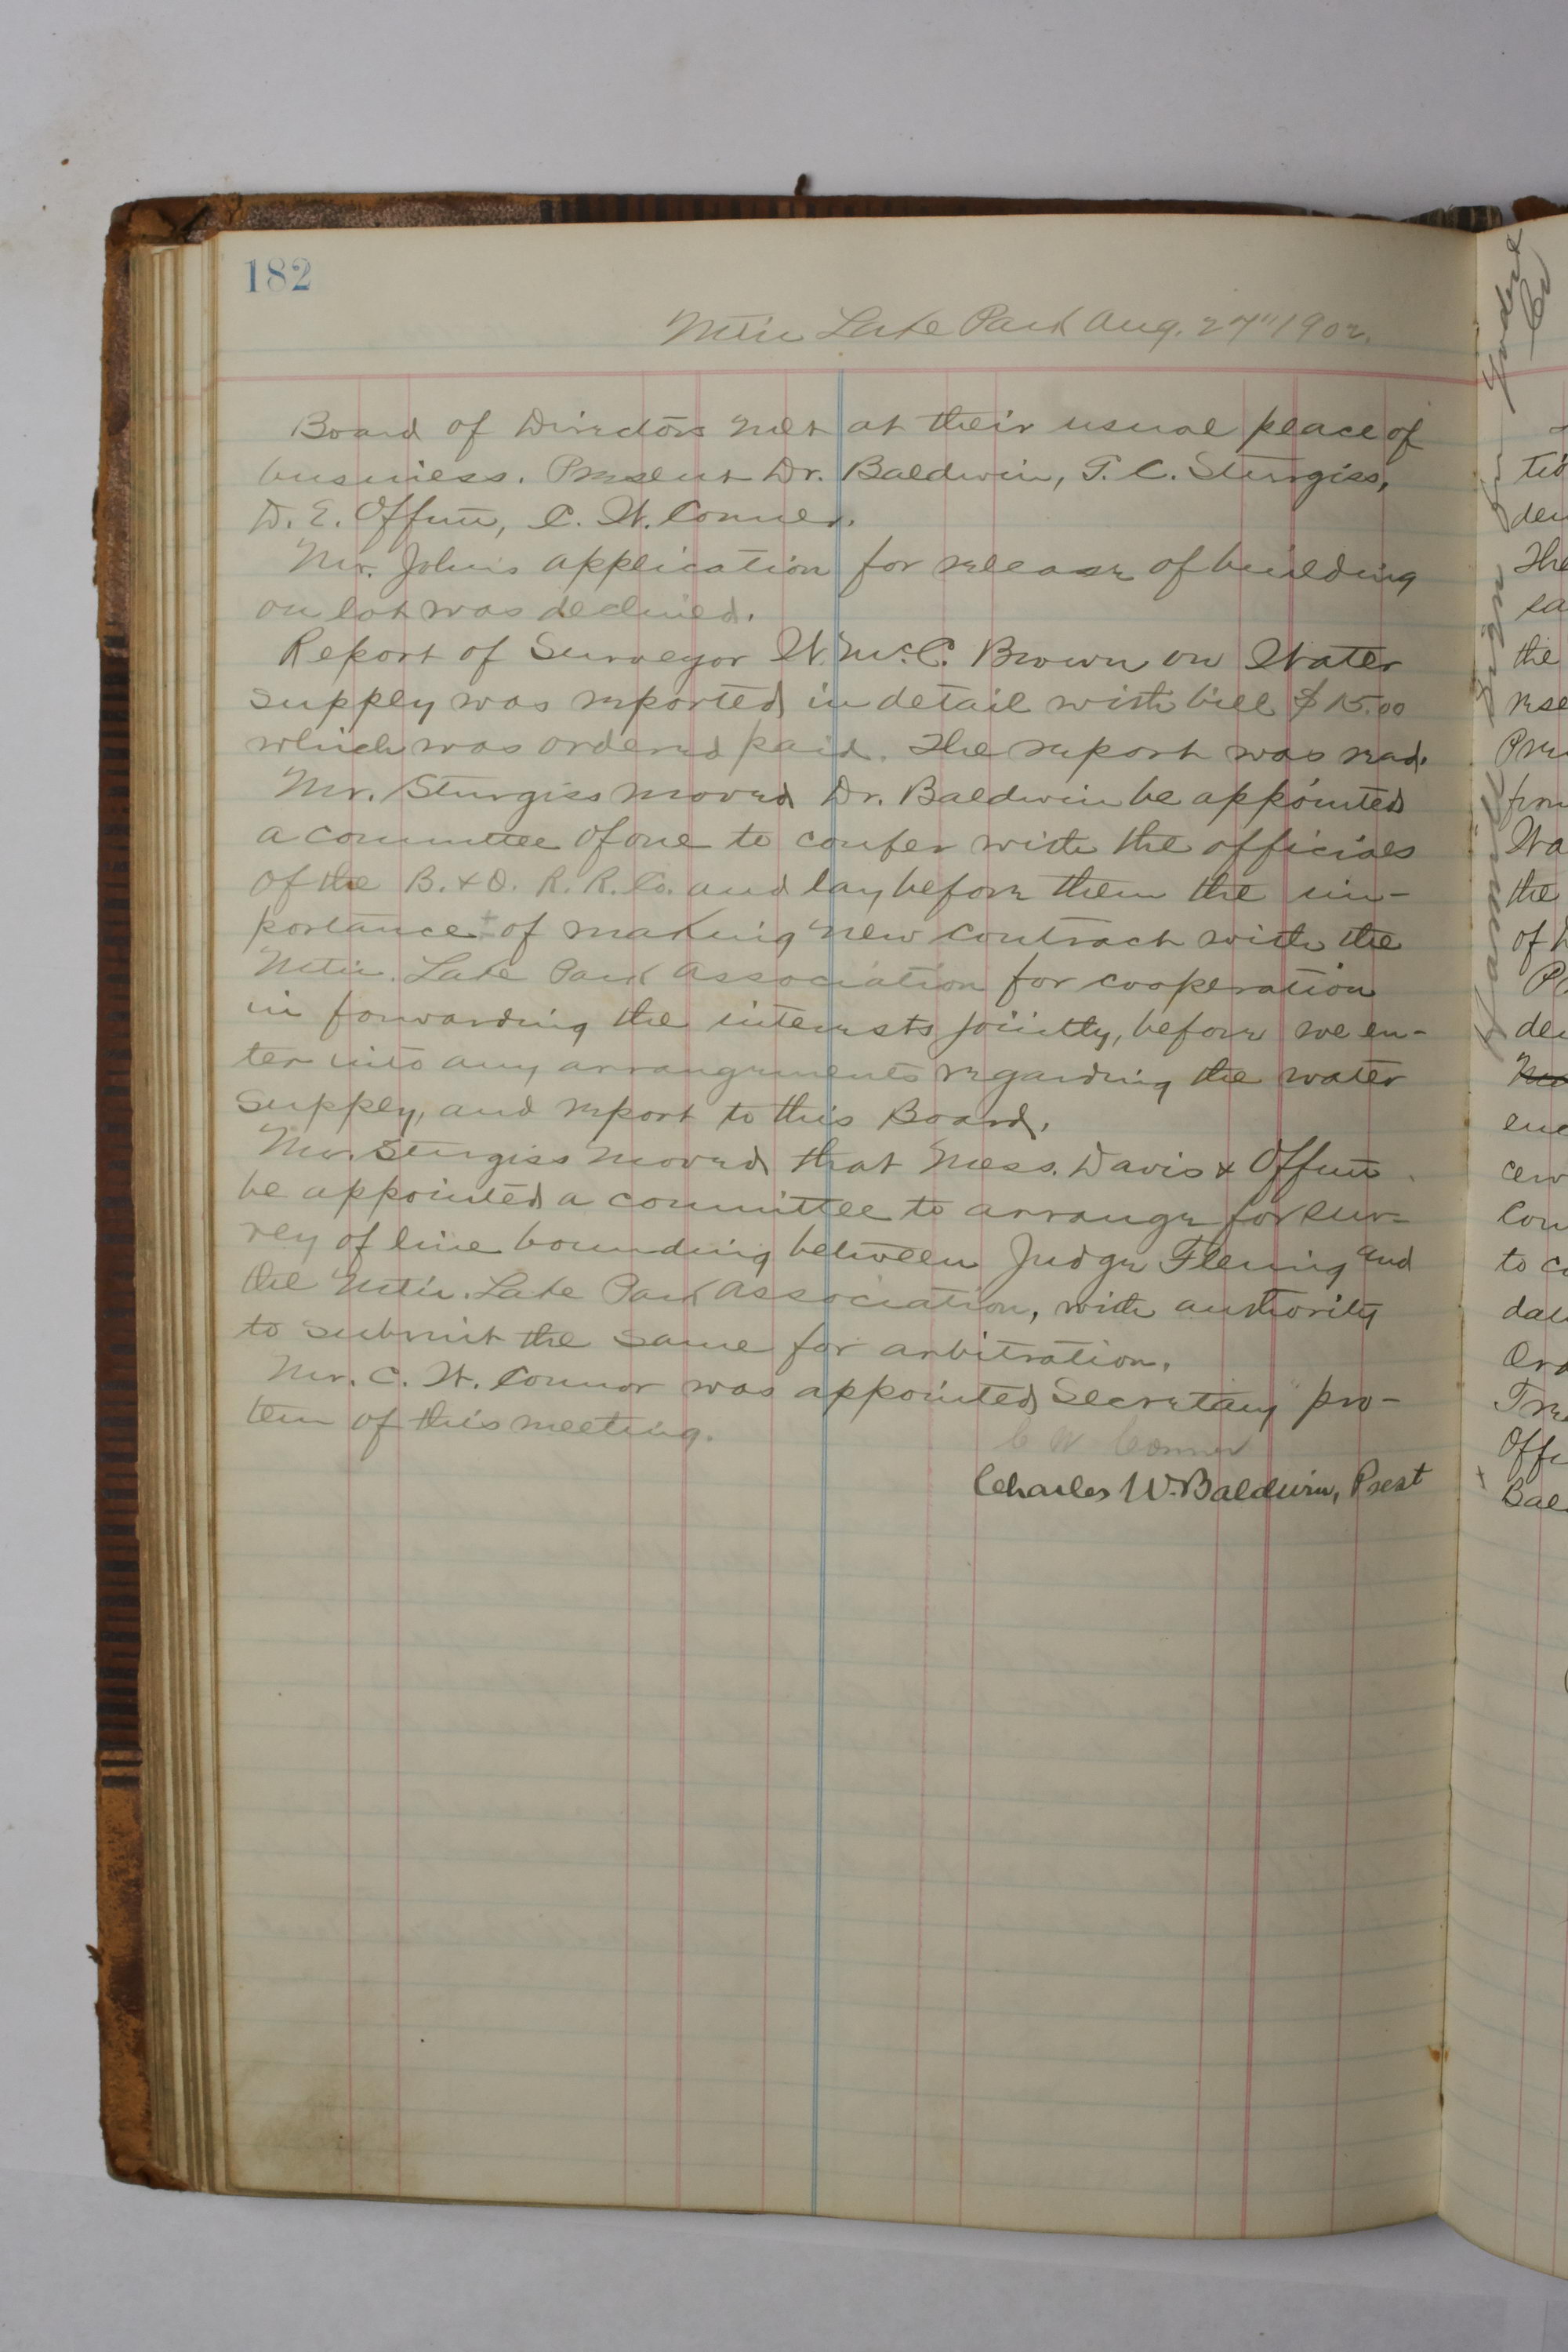 182
Mtn Lake Park Aug. 27" 1902.
Board of Directors met at their usual place of
business. Present Dr. Baldwin, T. C. Sturgiss,
D. E. Offutt, C. W. Conner.
Mr. Johns application for release of building
on lot was declined.
Report of Surveyor W. McC. Brown on Water
supply was reported in detail with bill $15.00
which was ordered paid. The report was read.
Mr. Sturgiss moved Dr. Baldwin be appointed
a committee of one to confer with the officials
of the B. & O. R. R. Co. and lay before them the im-
portance of making new contract with the
Mtn. Lake Park Association for cooperation
in forwarding the interests jointly, before we en-
ter into any arrangements regarding the water
supply, and report to this Board.
Mr. Sturgiss moved that Mess. Davis & Offutt
be appointed a committee to arrange for sur-
vey of line bounding between Judge Fleming and
the Mtn. Lake Park Association, with authority
to submit the same for arbitration.
Mr. C. W. Connor was appointed Secretary pro-
tem of this meeting.
C W Conner
Charles W. Baldwin, Prest
the
of
to
Bal